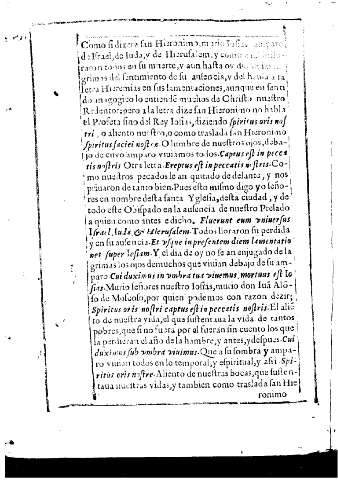 Como si dixera san Hieronimo, murio Iosias amparo
de Israel, de Iuda, y de Hierusalem, y como
raron todos en su muerte, y aun hasta oy
grimas del sentimiento de su ausencia, y del
letra Hieremias en sus lamentaciones, aunque en senti
do magogico lo entiende muchas de Christo nuestro
Redentor: pero a la letra dize san Hieronimo no habla
el Profeta sino del Rey Iosias, diziendo spiritus oris nos
tri, o aliento nuestro, o como traslada san Hieronimo
spiritus faciei nostræ. O lumbre de nuestros ojos, deba-
jo de cuyo amparo viuiamos todos. Captus est in pecca
tis nostris. Otra letra. Ereptus est in peccatis nostris. Co-
mo nuestros pecados le an quitado de delante, y nos
priuaron de tanto bien. Pues esto mismo digo yo seño-
res en nombre desta santa Yglesia, desta ciudad, y de
todo este Obispado en la ausencia de nuestro Prelado
a quien como antes e dicho. Fluerunt eum vniuersus
Israel, Iuda & Hierusalem. Todos lloraron su perdida
y en su ausencia. Et vsque in presentem diem lamentatio
nes super Iesiam. Y el dia de oy no se an enjugado de la
grimas los ojos de muchos que viuian debajo de su am-
paro Cui duximus in vmbra tua viuemus, mortuus est Io
sias. Murio señores nuestro Iosias, murio don Iuã Alõ-
so de Moscoso, por quien podemos con razon dezir;
Spiritus oris nostri captus est in peccatis nostris. El aliẽ
to de nuestra vida, el que sustentaua la vida de tantos
pobres, que si no fuera por el fueran sin cuento los que
la perdieran el año de la hambre, y antes, y despues. Cui
duximus sub vmbra viuimus. Que a su sombra y ampa-
ro viuian todas en lo temporal, y espiritual, y assi. Spi-
ritus oris nostre. Aliento de nuestras bocas, que susten-
taua nuestras vidas, y tambien como traslada san Hie
ronimo